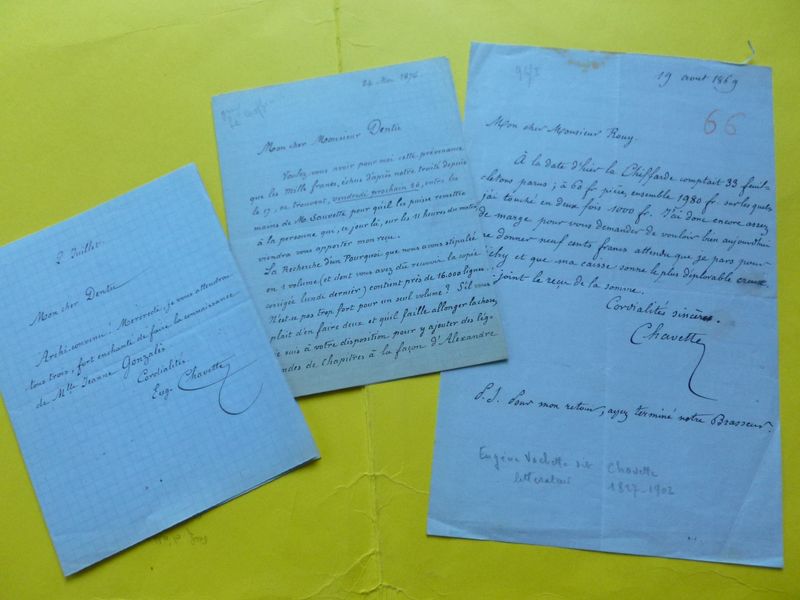 2 Juillet.
Mon cher Dentu
Archi-convenu ! Mercredi, je vous attendrai
tous trois, fort enchanté de faire la connaissance
de Mlle Jeanne Gonzalès
Cordialités
Eug. Chavette
24 Mai 1876
Mon cher Monsieur Dentu
Voulez vous avoir pour moi cette prévenance
que les mille francs, échus d'après notre traité depuis
le 17, se trouvent, vendredi prochain 26, entre les
mains de Mr Sauvette pour qu'il les puisse remettre
à la personne qui, ce jour là, sur les 11 heures du matin,
viendra vous apporter mon reçu.
La Recherche d'un Pourquoi que nous avons stipulée
en 1 volume (et dont vous avez dû recevoir la copie
corrigée lundi dernier) contient près de 16.000 lignes.
N'est-ce pas trop fort pour un seul volume ? S'il vous
plait d'en faire deux et qu'il faille allonger la chose,
je suis à votre disposition pour y ajouter des lég-
endes de Chapitres à la façon d'Alexandre
94/3
19 aout 1869
66
Mon cher Monsieur Rouy.
À la date d'hier la Cheffarde comptait 33 feuil-
letons parus ; à 60 fr pièce, ensemble 1980 fr. sur lesquels
j'ai touché en deux fois 1000 fr. J'ai donc encore assez
de marge pour vous demander de vouloir bien aujourd'hui
me donner neuf cents francs attendu que je pars pour
Vichy et que ma caisse sonne le plus déplorable creux.
ci joint le reçu de la somme.
Cordialités sincères.
Chavette
P.S. Pour mon retour, ayez terminé notre Brasseur.
Eugène Vachette dit Chavette
littérateur 1827-1902